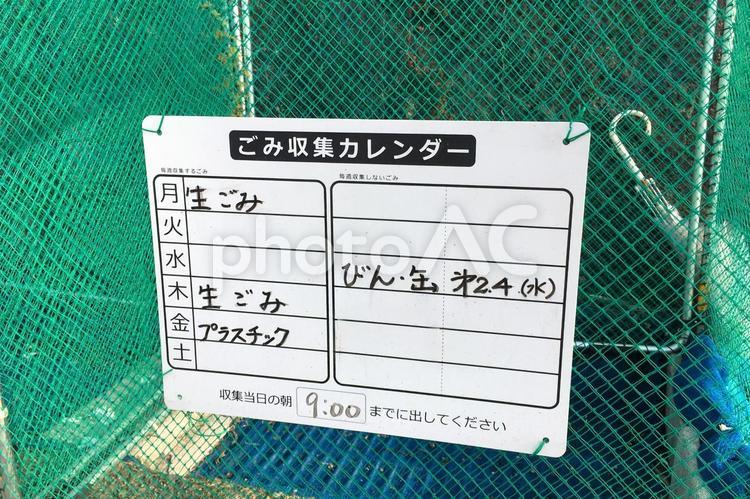 ごみ収集カレンダー
毎週収集するごみ
毎週収集しないごみ
月 生ごみ
火
水
びん・缶 第2.4(水)
木 生ごみ
金 プラスチック
土
収集当日の朝 9:00 までに出してください
photoAC